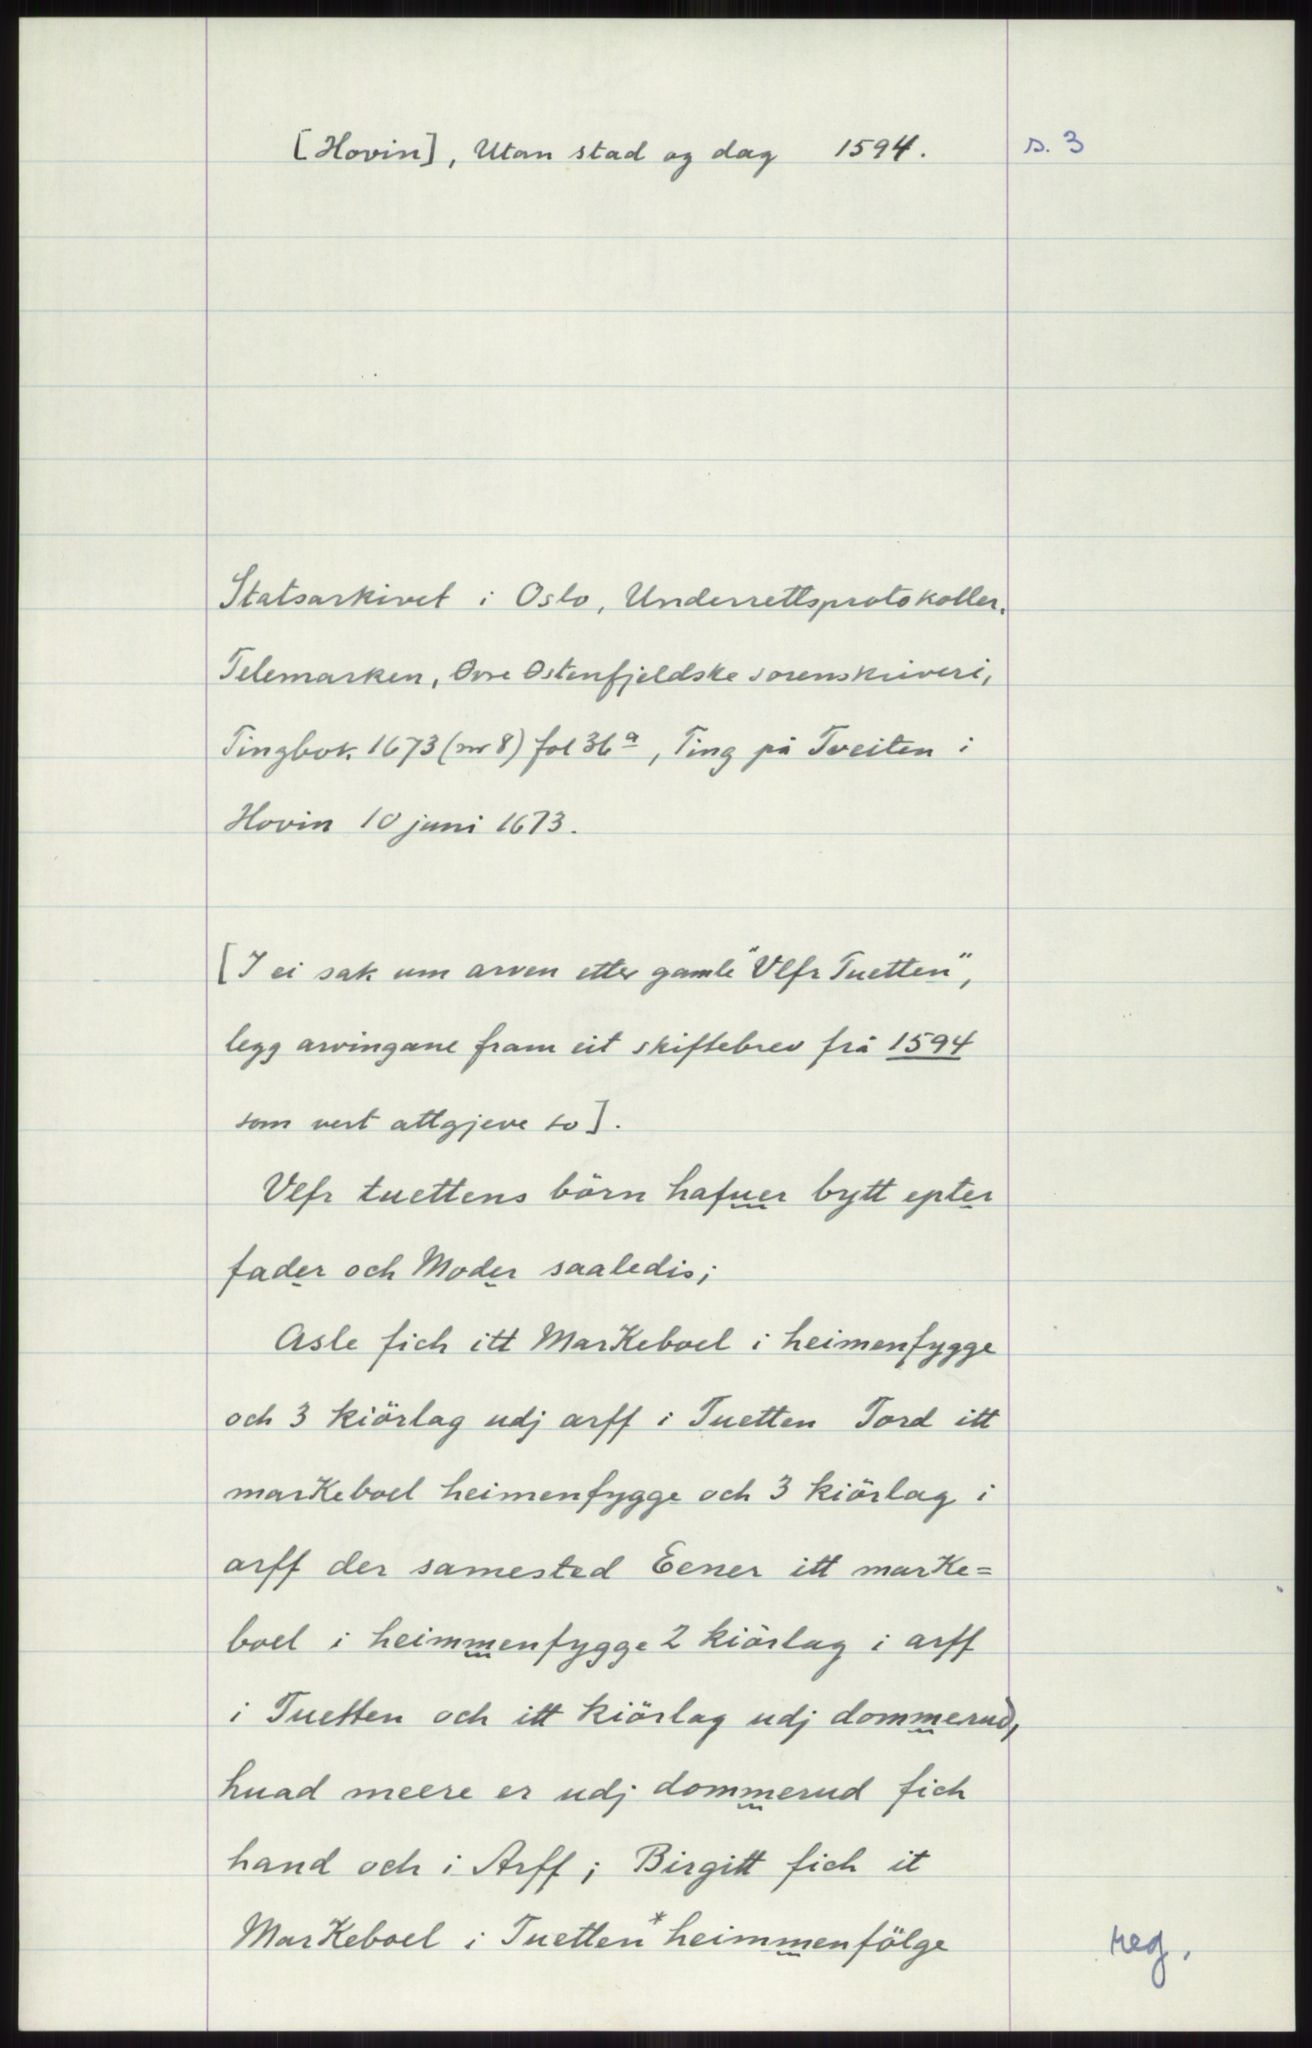 [Hovin], Utan stad og dag 1594. s. 3
Statsarkivet i Oslo, Underrettsprotokoller.
Telemarken, Øvre Østenfjeldske sorenskriveri,
Tingbok 1673 (nr 8) fol 36 a, Ting på Tveiten i
Hovin 10 juni 1673.
[I ei sak um arven etter gamle "Vlfr Tuetten",
legg arvingane fram eit skiftebrev frå 1594
som vert attgjeve so].
Vlfr tuettens börn hafuer bytt epter
fader och Moder saaledis;
Asle fich itt MarKeboel i heimenfygge
och 3 kiörlag udj arff i Tuetten Tord itt
marKeboel heimenfygge och 3 kiörlag i
arff der samested Eener itt marKe=
boel i heimmenfygge 2 kiörlag i arff
i Tuetten och itt kiörlag udj dommerud,
huad meere er udj dommerud fich
hand och i Arff; Birgitt fich it
MarKeboel i Tuetten* heimmenfölge
reg.